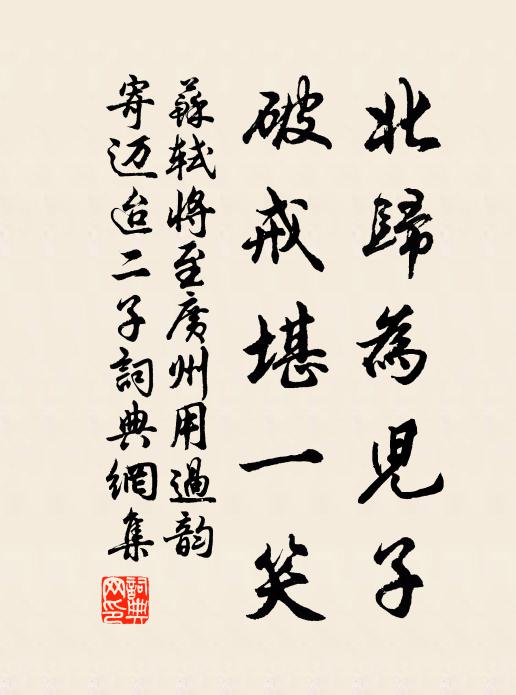 北歸為兒子
破戒堪一笑
蘇軾將至廣州用過韵
寄迈迨二子詞典網集
詞典